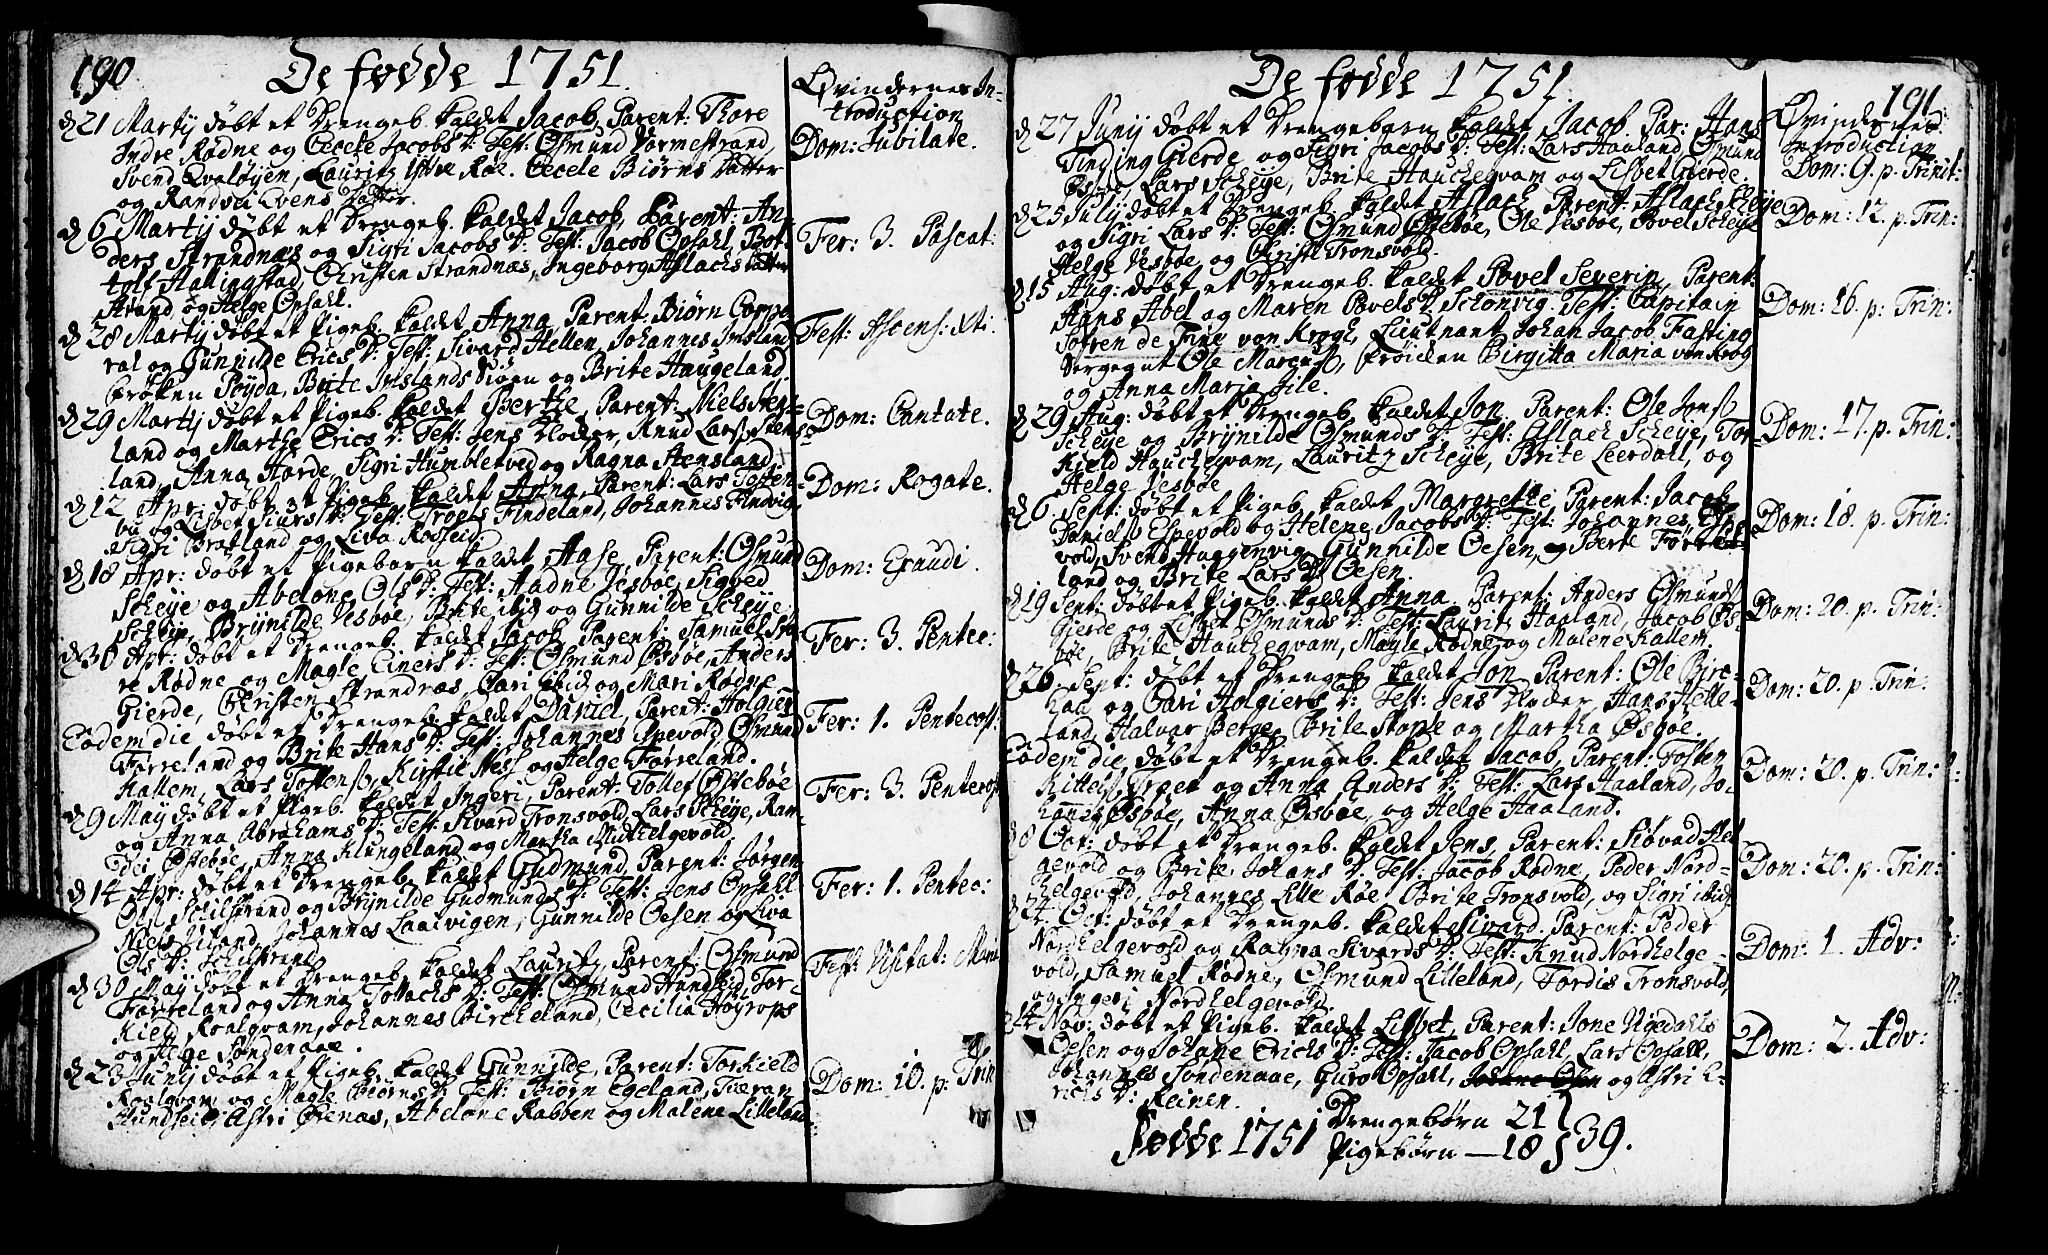 190
De fødde 1751.
Qvindernes In-
troduction
d 21 Martij døbt et Drengeb. kaldet Jacob, Parent: Thore
Indre Rødne og Cecele Jacobs D: Test: Osmund Vormestrand,
Svend Qvaløyen, Lauritz Røe. Cecele Biørns Datter
og Randvei Datter.
Dom: Jubilate.
d 6 Martij døbt et Drengeb. kaldet Jacob, Parent: An-
ders Strandnæs og Sigri Jacobs D: Test: Jacob Opsahl, Bot-
tolf Hallingstad, Christen Strandnæs, Ingeborg Aslachs Datter
Strand og Helge Opsahl.
Fer: 3. Pascat:
d 28 Martij døbt et Pigeb. kaldet Anna, Parent: Biørn Corpo-
ral og Gunnilde Erics D: Test: Sivard Hellen, Johannes Imsland,
frøken Søyda, Brite Imslands Siøen og Brite Haugeland.
Fest: Ascens: Xti.
d 29 Martij døbt et Pigeb. kaldet Berthe, Parent: Niels Stens-
land og Marthe Erics D: Test: Jens Kloder, Knud Larsß Stens-
land, Anna Harde, Sigri Humbletved og Ragna Stensland.
Dom: Cantate.
d 12 Apr: døbt et Pigeb. kaldet Anna, Parent: Lars Testen-
bu og Lisbet Siurs D: Test: Troels Findeland, Johannes Findvig,
Sigri Bratland og Liva Rosseid.
Dom: Rogate.
d 18 Apr: døbt et Pigebarn kaldet Aase, Parent: Osmund
Scheije og Abelone Ols D: Test: Aadne Vesbøe, Sigved
Scheije, Brynilde Vesbøe, Brite ibid og Gunnilde Scheije.
Dom: Exaudi.
d 30 Apr: døbt et Drengeb. kaldet Jacob, Parent: Samuel Sto-
re Rødne og Magle Einers D: Test: Osmund Øsbøe, Anders
Gierde, Christen Strandnæs, Cari ibid og Mari Rødne.
Fer: 3. Pentec:
Eodem die døbt et Drengeb. kaldet Daniel, Parent: Holgier
Førreland og Brite Hans D: Test: Johannes Espevold, Osmund
Kallem, Lars Tostensß, Kirstie Ness og Helge Førreland.
Fer: 1. Pentecost:
d 9 May døbt et Pigeb. kaldet Ingeri, Parent: Tollef Østebøe
og Anna Abrahams D: Test: Sivard Tronsvold, Lars Scheije, Ran-
di Østebøe, Anna Klungeland og Martha Mitthelgevold.
Fer: 3. Pentecost
d 14 Apr: døbt et Drengeb. kaldet Gudmund, Parent: Jørgen
Olsß Schilstrand og Brynilde Gudmunds D: Test: Jens Opsahl
Niels Uiland, Johannes Laarvigen, Gunnilde Oesen og Liva
Ols D: Schilstrand.
Fer: 1. Pentec:
d 30 May døbt et Drengeb. kaldet Lauritz, Parent: Osmund
Førreland og Anna Tollachs D: Test: Osmund Hundseid, Tor-
kield Roalqvam, Johannes Bircheland, Cecilia Høyrops
og Helge Søndenaae.
Fest: Visitat: Mariæ
d 23 Junij døbt et Pigeb. kaldet Gunnilde, Parent: Torkield
Roalqvam og Magle Biørns D: Test: Biørn Egeland, Tveran
Hundseid, Astri Ørenas, Abelone Rabben og Malene Lilleland
Dom: 10. p: Trin
De fødde 1751
191
Qvindernes
Introduction
d 27 Junij døbt et Drengebarn kaldet Jacob. Par: Hans
Tinding Gierde og Sigri Jacobs D: Test: Lars Haaland, Osmund
Øsbøe, Lars Scheije, Brite Hauchegvam og Lisbet Gierde.
Dom: 9. p. Trinit:
d 25 Julij døbt et Drengeb. kaldet Aslach, Parent: Aslach Scheije
og Sigri Lars D: Test: Osmund Østebøe, Ole Vesbøe, Povel Scheije
Helge Vesbøe, og Christi Tronsvold.
Dom: 12. p. Trin:
d 15 Aug: døbt et Drengeb. kaldet Povel Severin, Parent:
Hans Abel og Maren Povels D: Schonvig. Test: Capitain
Søfren de Finn von Krogh, Lieutnant Johan Jacob Fasting,
Sergeant Ole Marcusß, frøiden Birgitta Maria von Krog
og Anna Maria File.
Dom: 16. p: Trin:
d 29 Aug: døbt et Drengeb. kaldet Jon. Parent: Ole Jonsß
Scheije og Brynilde Osmunds D: Test: Aslach Scheije, Tor-
kield Hauchegvam, Lauritz Scheije, Brite Leerdall, og
Helge Vesbøe
Dom: 17. p. Trin:
d 6 Sept: døbt et Pigeb. kaldet Margrethe Parent: Jacob
Danielsß Espevold og Helene Jacobs D: Test: Johannes Espe-
vold, Svend Haggenvig, Gunnilde Oesen, og Berte Førre-
land og Brite Lars D: Oesen.
Dom: 18. p. Trin:
d 19 Sept: døbt et Pigeb. kaldet Anna. Parent: Anders Osmundsß
Gierde og Lisbet Osmunds D: Test: Lauritz Haaland, Jacob Øs-
bøe, Brite Hauchegvam, Magle Rødne og Malene Kallem.
Dom: 20. p. Trin:
d 26. Sept: døbt et Drengeb. kaldet Jon, Parent: Ole Birc-
haa og Cari Holgiers D: Test: Jens Kloder, Hans Helle-
land, Halvor Berge, Brite Stople og Martha Øsbøe.
Dom: 20. p. Trin:
Eodem Die døbt et Drengeb. kaldet Jacob, Parent: Tosten
Kittelsß Træet og Anna Anders D: Test: Lars Haaland, Jo-
hannes Øsbøe, Anna Øsbøe, og Helge Haaland.
Dom: 20. p. Trin:
d 8 Oct: døbt et Drengeb. kaldet Jens, Parent: Siøvad Hel-
gevold og Brite Johans D: Test: Jacob Rødne, Peder Nord-
helgevold, Johannes Lille Røe, Brite Tronsvold, og Sigri ibid.
Dom: 20. p. Trin:
d 24 Oct: døbt et Drengeb. kaldet Sivard. Parent: Peder
Nordhelgevold og Ragna Sivards D: Test: Knud Nordhelge-
vold, Samuel Rødne, Osmund Lilleland, Tordis Tronsvold,
og Ingeri Nordhelgevold.
Dom: 1. Adv:
d 14 Nov: døbt et Pigeb. kaldet Lisbet, Parent: Jone Uigedahls
Oesen og Johane Erichs D: Test: Jacob Opsahl, Lars Opsahl,
Johannes Søndenaae, Guro Opsahl, Johane Osen og Astri E-
richs D: Reinen.
Dom: 2. Adv:
Fødde 1751 Drengebørn 21
Pigebørn — 18 } 39.